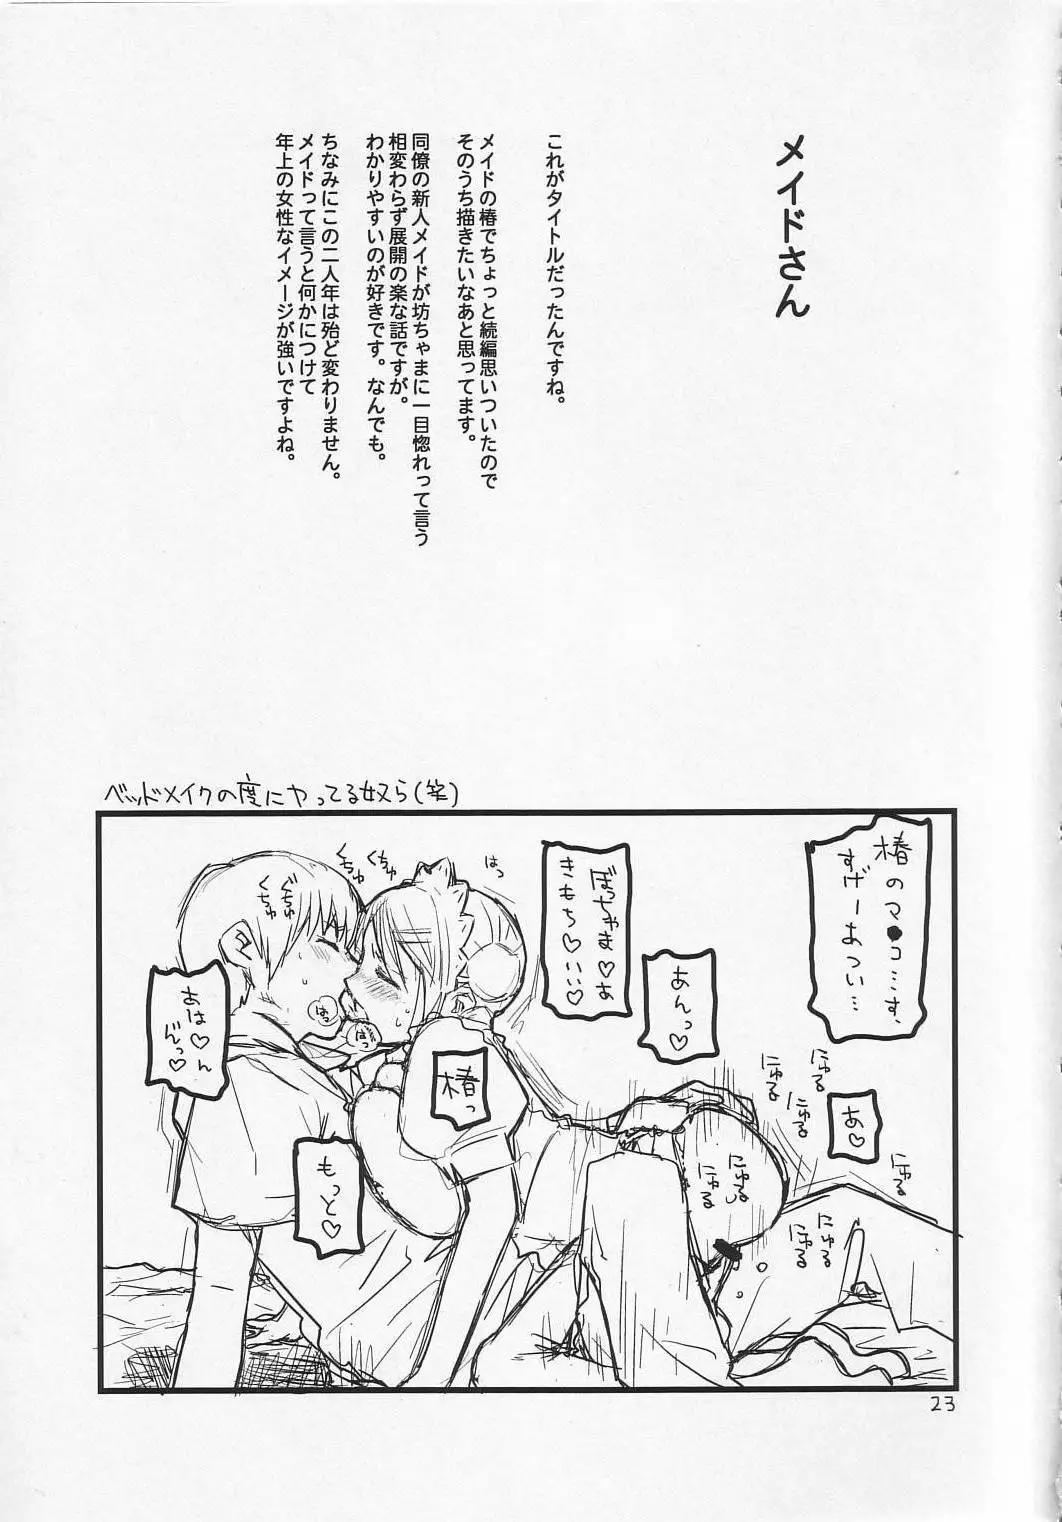 メイドさん
これがタイトルだったんですね。
メイドの椿でちょっと続編思いついたので
そのうち描きたいなあと思ってます。
同僚の新人メイドが坊ちゃまに一目惚れって言う
相変わらず展開の楽な話ですが。
わかりやすいのが好きです。なんでも。
ちなみにこの二人年は殆ど変わりません。
メイドって言うと何かにつけて
年上の女性なイメージが強いですよね。
ベッドメイクの度にヤってる奴ら(笑)
椿のマ●コ…す、
すげーあつい…
ぼっちゃま♡あ
きもち♡いい♡
あんっ♡
はっ
くちゅ
くちゅ
ぐちゅ
くちゅ
はっ
はっ
あは♡ん
んっ♡
椿っ
もっと♡
あ♡
にゅる
にゅる
にゅる
にゅる
にゅる
にゅる
にゅる
23